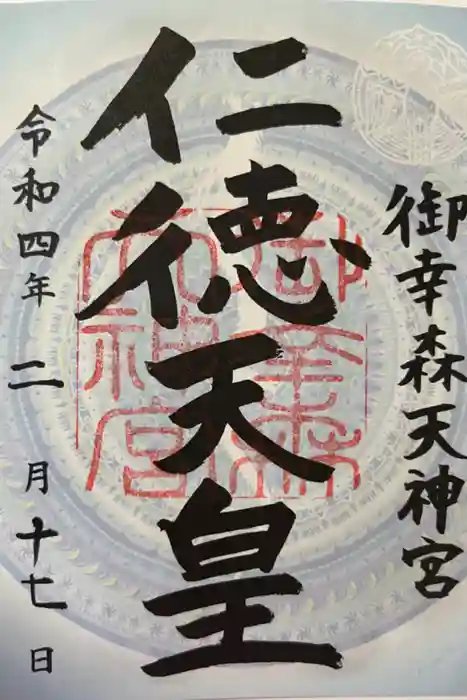 御幸森天神宮
仁徳天皇
令和四年二月十七日
御幸森
天神宮